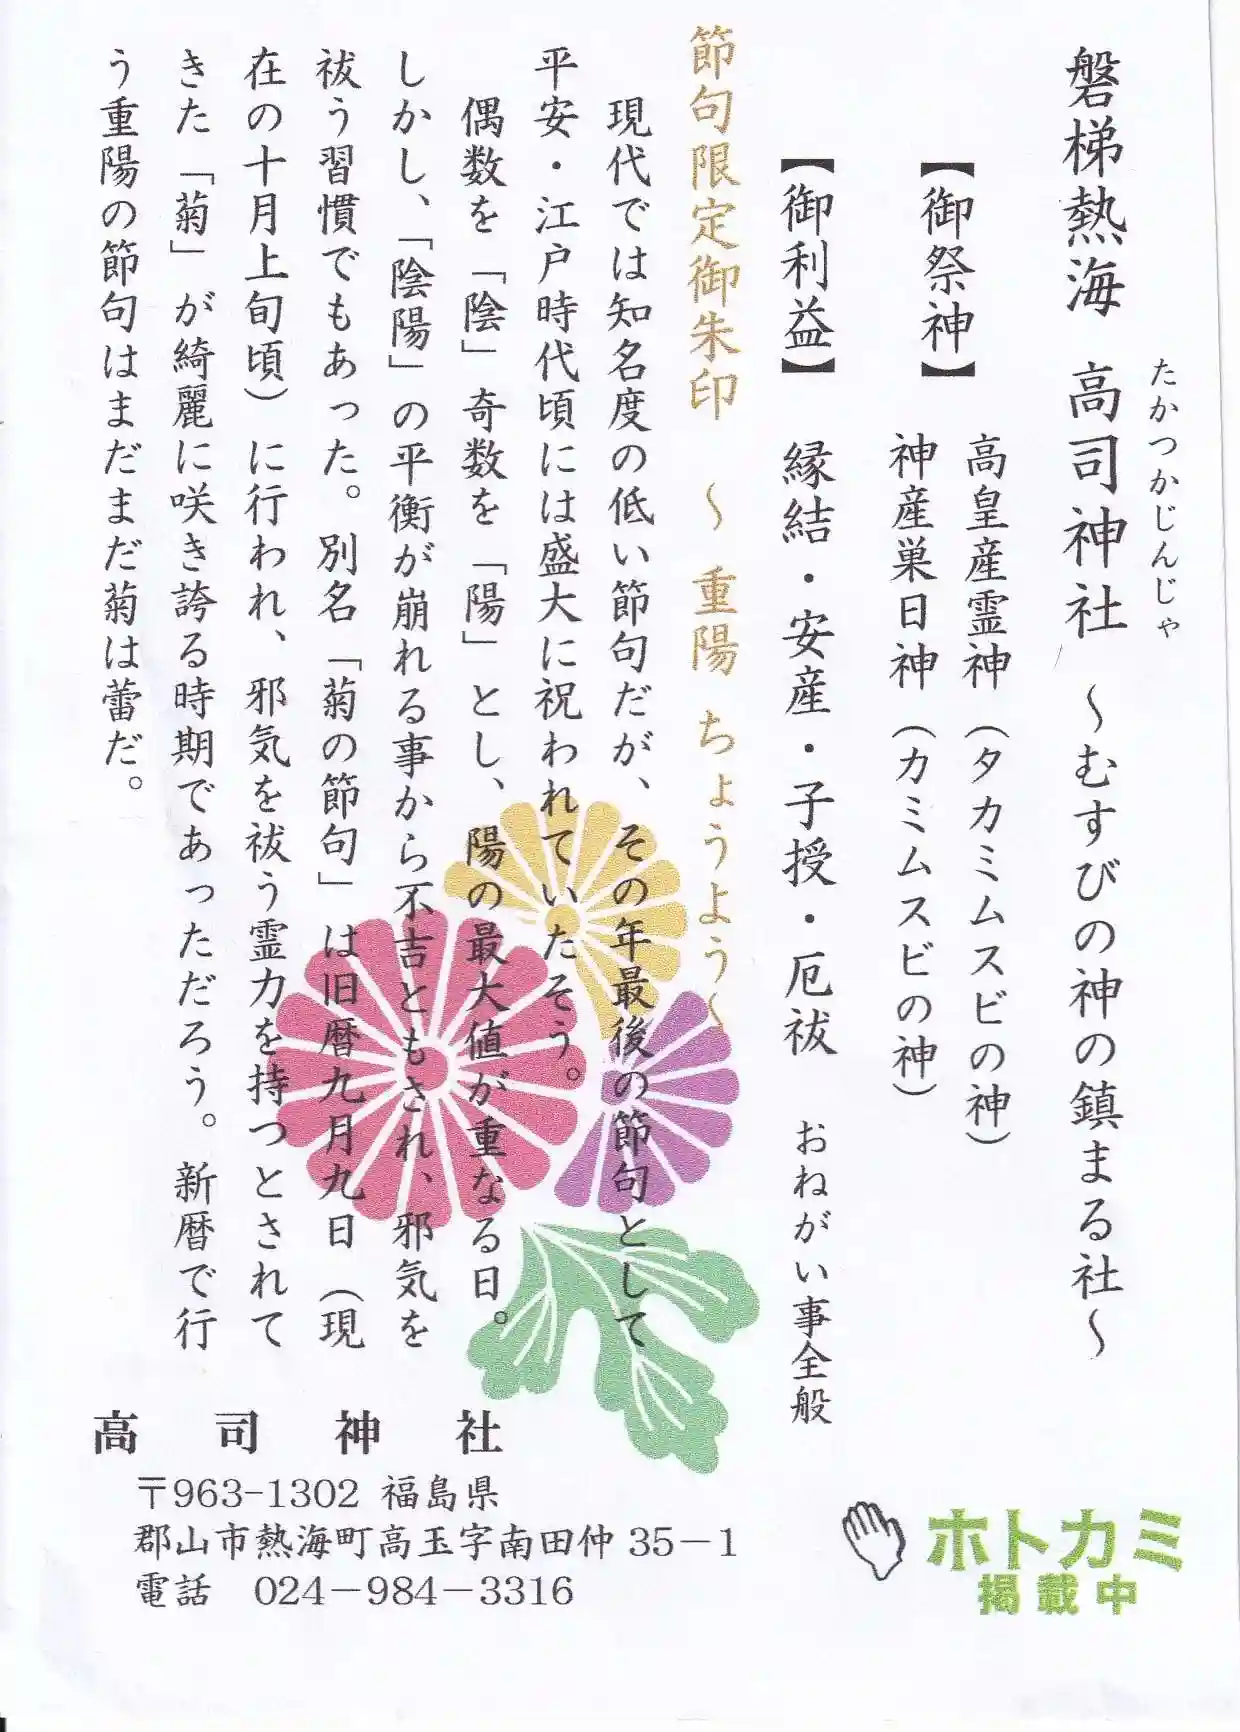 たかつかじんじゃ
磐梯熱海 高司神社 ～むすびの神の鎮まる社～
【御祭神】 高皇産霊神（タカミムスビの神）
神産巣日神（カミムスビの神）
【御利益】 縁結・安産・子授・厄祓 おねがい事全般
節句限定御朱印 ～ 重陽 ちょうよう～
現代では知名度の低い節句だが、その年最後の節句として
平安・江戸時代頃には盛大に祝われていたそう。
偶数を「陰」奇数を「陽」とし、陽の最大値が重なる日。
しかし、「陰陽」の平衡が崩れる事から不吉ともされ、邪気を
祓う習慣でもあった。別名「菊の節句」は旧暦九月九日（現
在の十月上旬頃）に行われ、邪気を祓う霊力を持つとされて
きた「菊」が綺麗に咲き誇る時期であっただろう。新暦で行
う重陽の節句はまだまだ菊は蕾だ。
高司神社
〒963-1302 福島県
郡山市熱海町高玉字南田仲 35－1
電話 024－984－3316
ホトカミ
掲載中